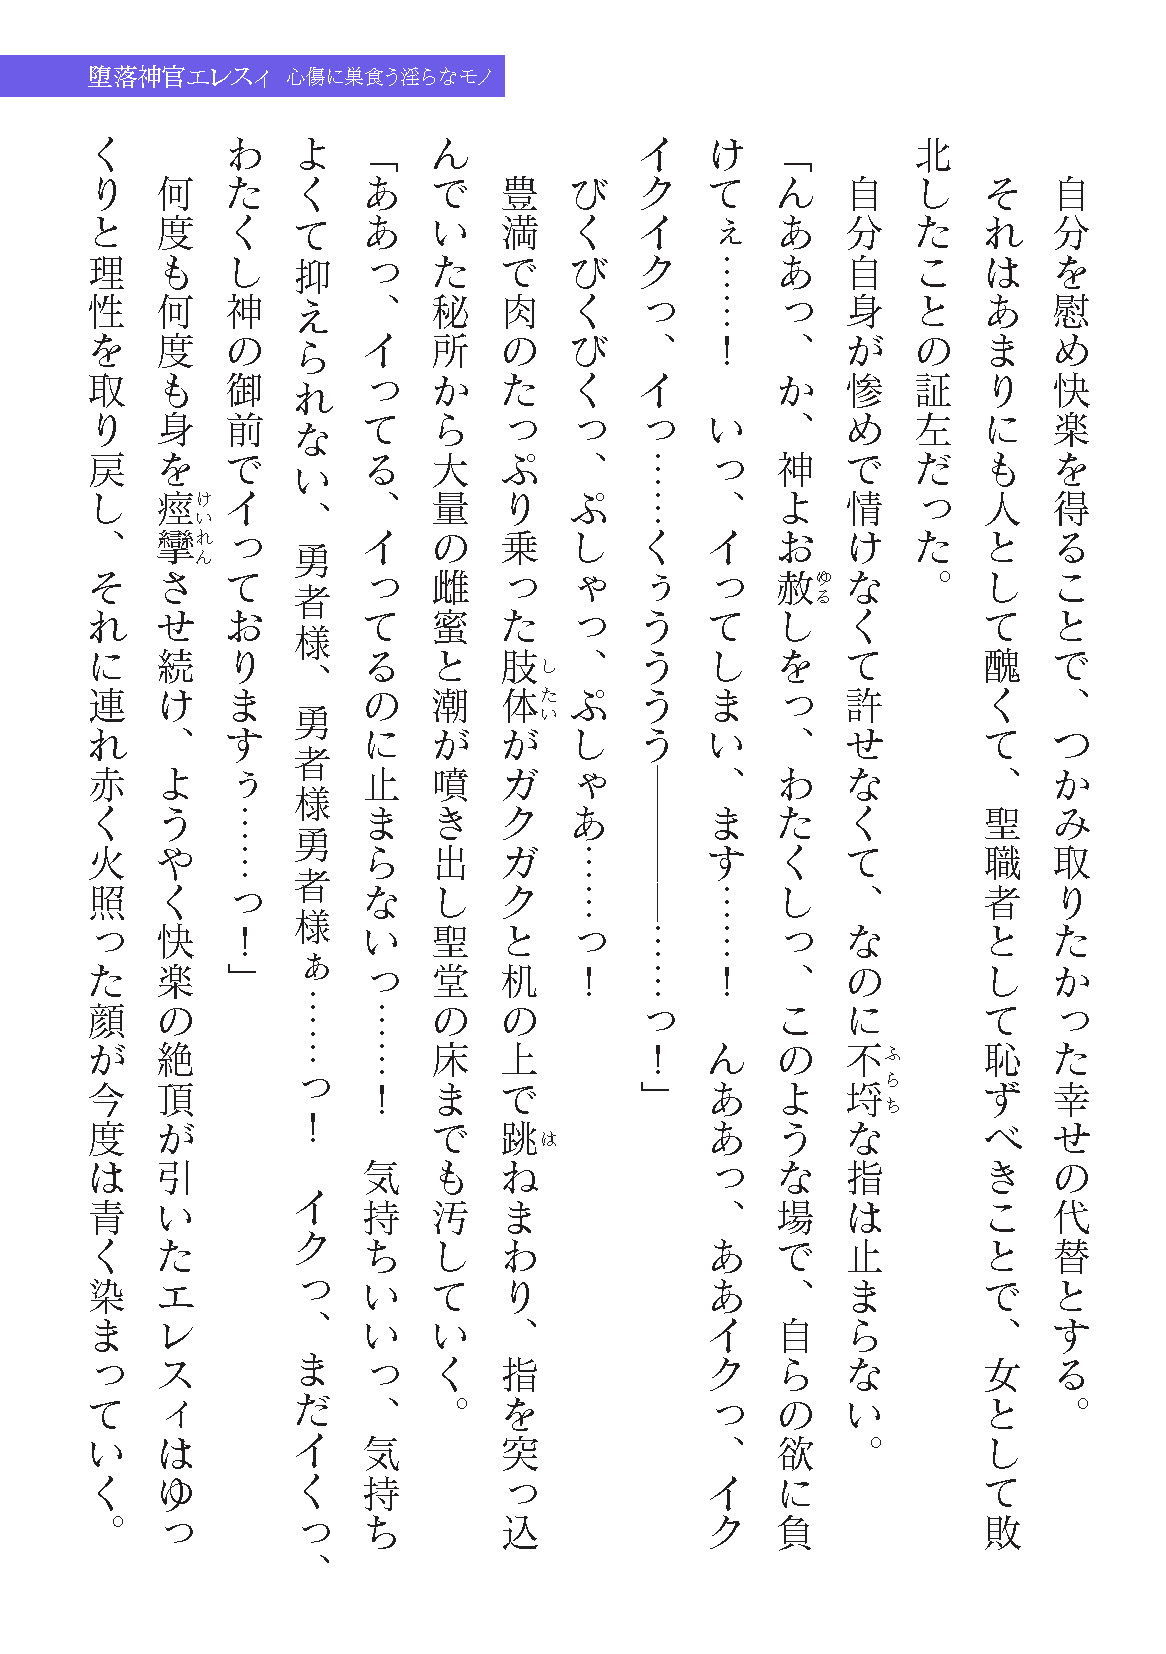 堕落神官エレスィ 心傷に巣食う淫らなモノ
　自分を慰め快楽を得ることで、つかみ取りたかった幸せの代替とする。
　それはあまりにも人として醜くて、聖職者として恥ずべきことで、女として敗
北したことの証左だった。
　自分自身が惨めで情けなくて許せなくて、なのに不埒な指は止まらない。
「んああっ、か、神よお赦しをっ、わたくしっ、このような場で、自らの欲に負
けてぇ……！　いっ、イってしまい、ます……！　んああっ、ああイクっ、イク
イクイクっ、イっ……くぅうううう――――……っ！」
　びくびくびくっ、ぷしゃっ、ぷしゃあ……っ！
　豊満で肉のたっぷり乗った肢体がガクガクと机の上で跳ねまわり、指を突っ込
んでいた秘所から大量の雌蜜と潮が噴き出し聖堂の床までも汚していく。
「ああっ、イってる、イってるのに止まらないっ……！　気持ちいいっ、気持ち
よくて抑えられない、勇者様、勇者様勇者様ぁ……っ！　イクっ、まだイくっ、
わたくし神の御前でイっておりますぅ……っ！」
　何度も何度も身を痙攣させ続け、ようやく快楽の絶頂が引いたエレスィはゆっ
くりと理性を取り戻し、それに連れ赤く火照った顔が今度は青く染まっていく。